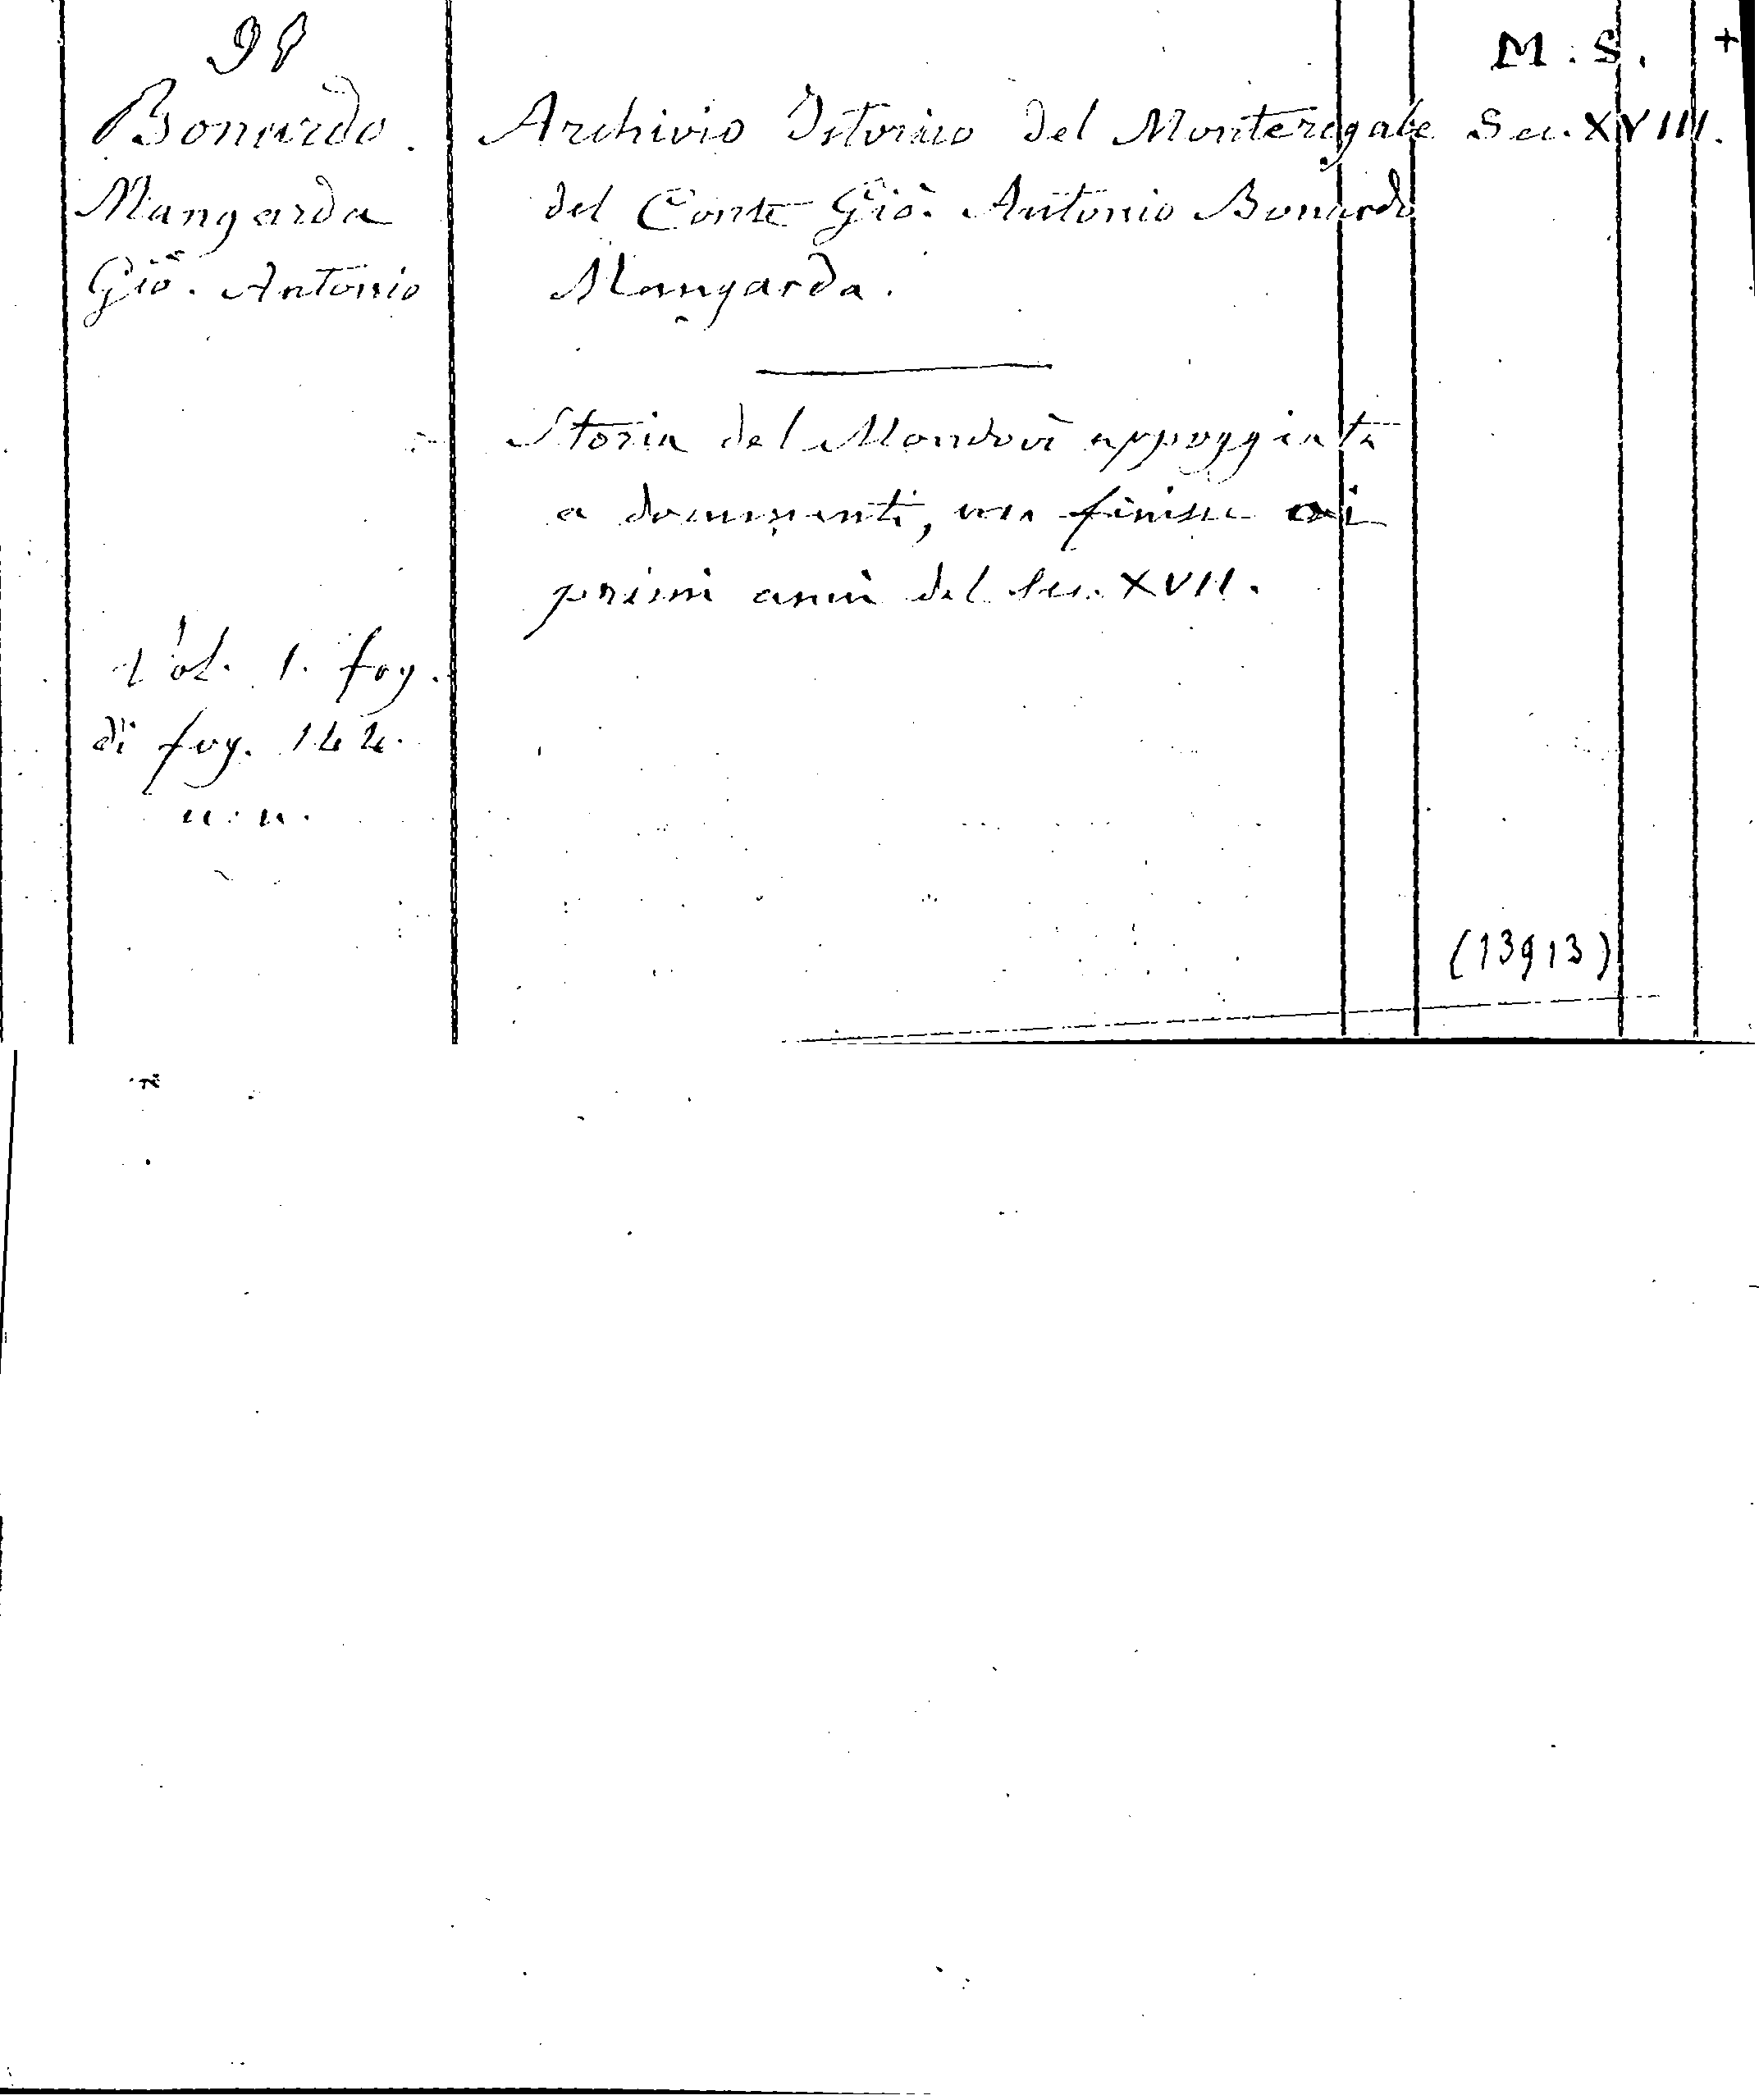 98
M. S. +
Bonardo.
Mangarda
Giò. Antonio
Archivio Istorico del Monteregale Sec. XVIII.
del Conte Giò. Antonio Bonardo
Mangarda.
Storia del Mondovì appoggiata
a documenti, ma finisce ai
primi anni del Sec. XVII.
Vol. 1. fog.
di fog. 144.
n. n.
(13913)